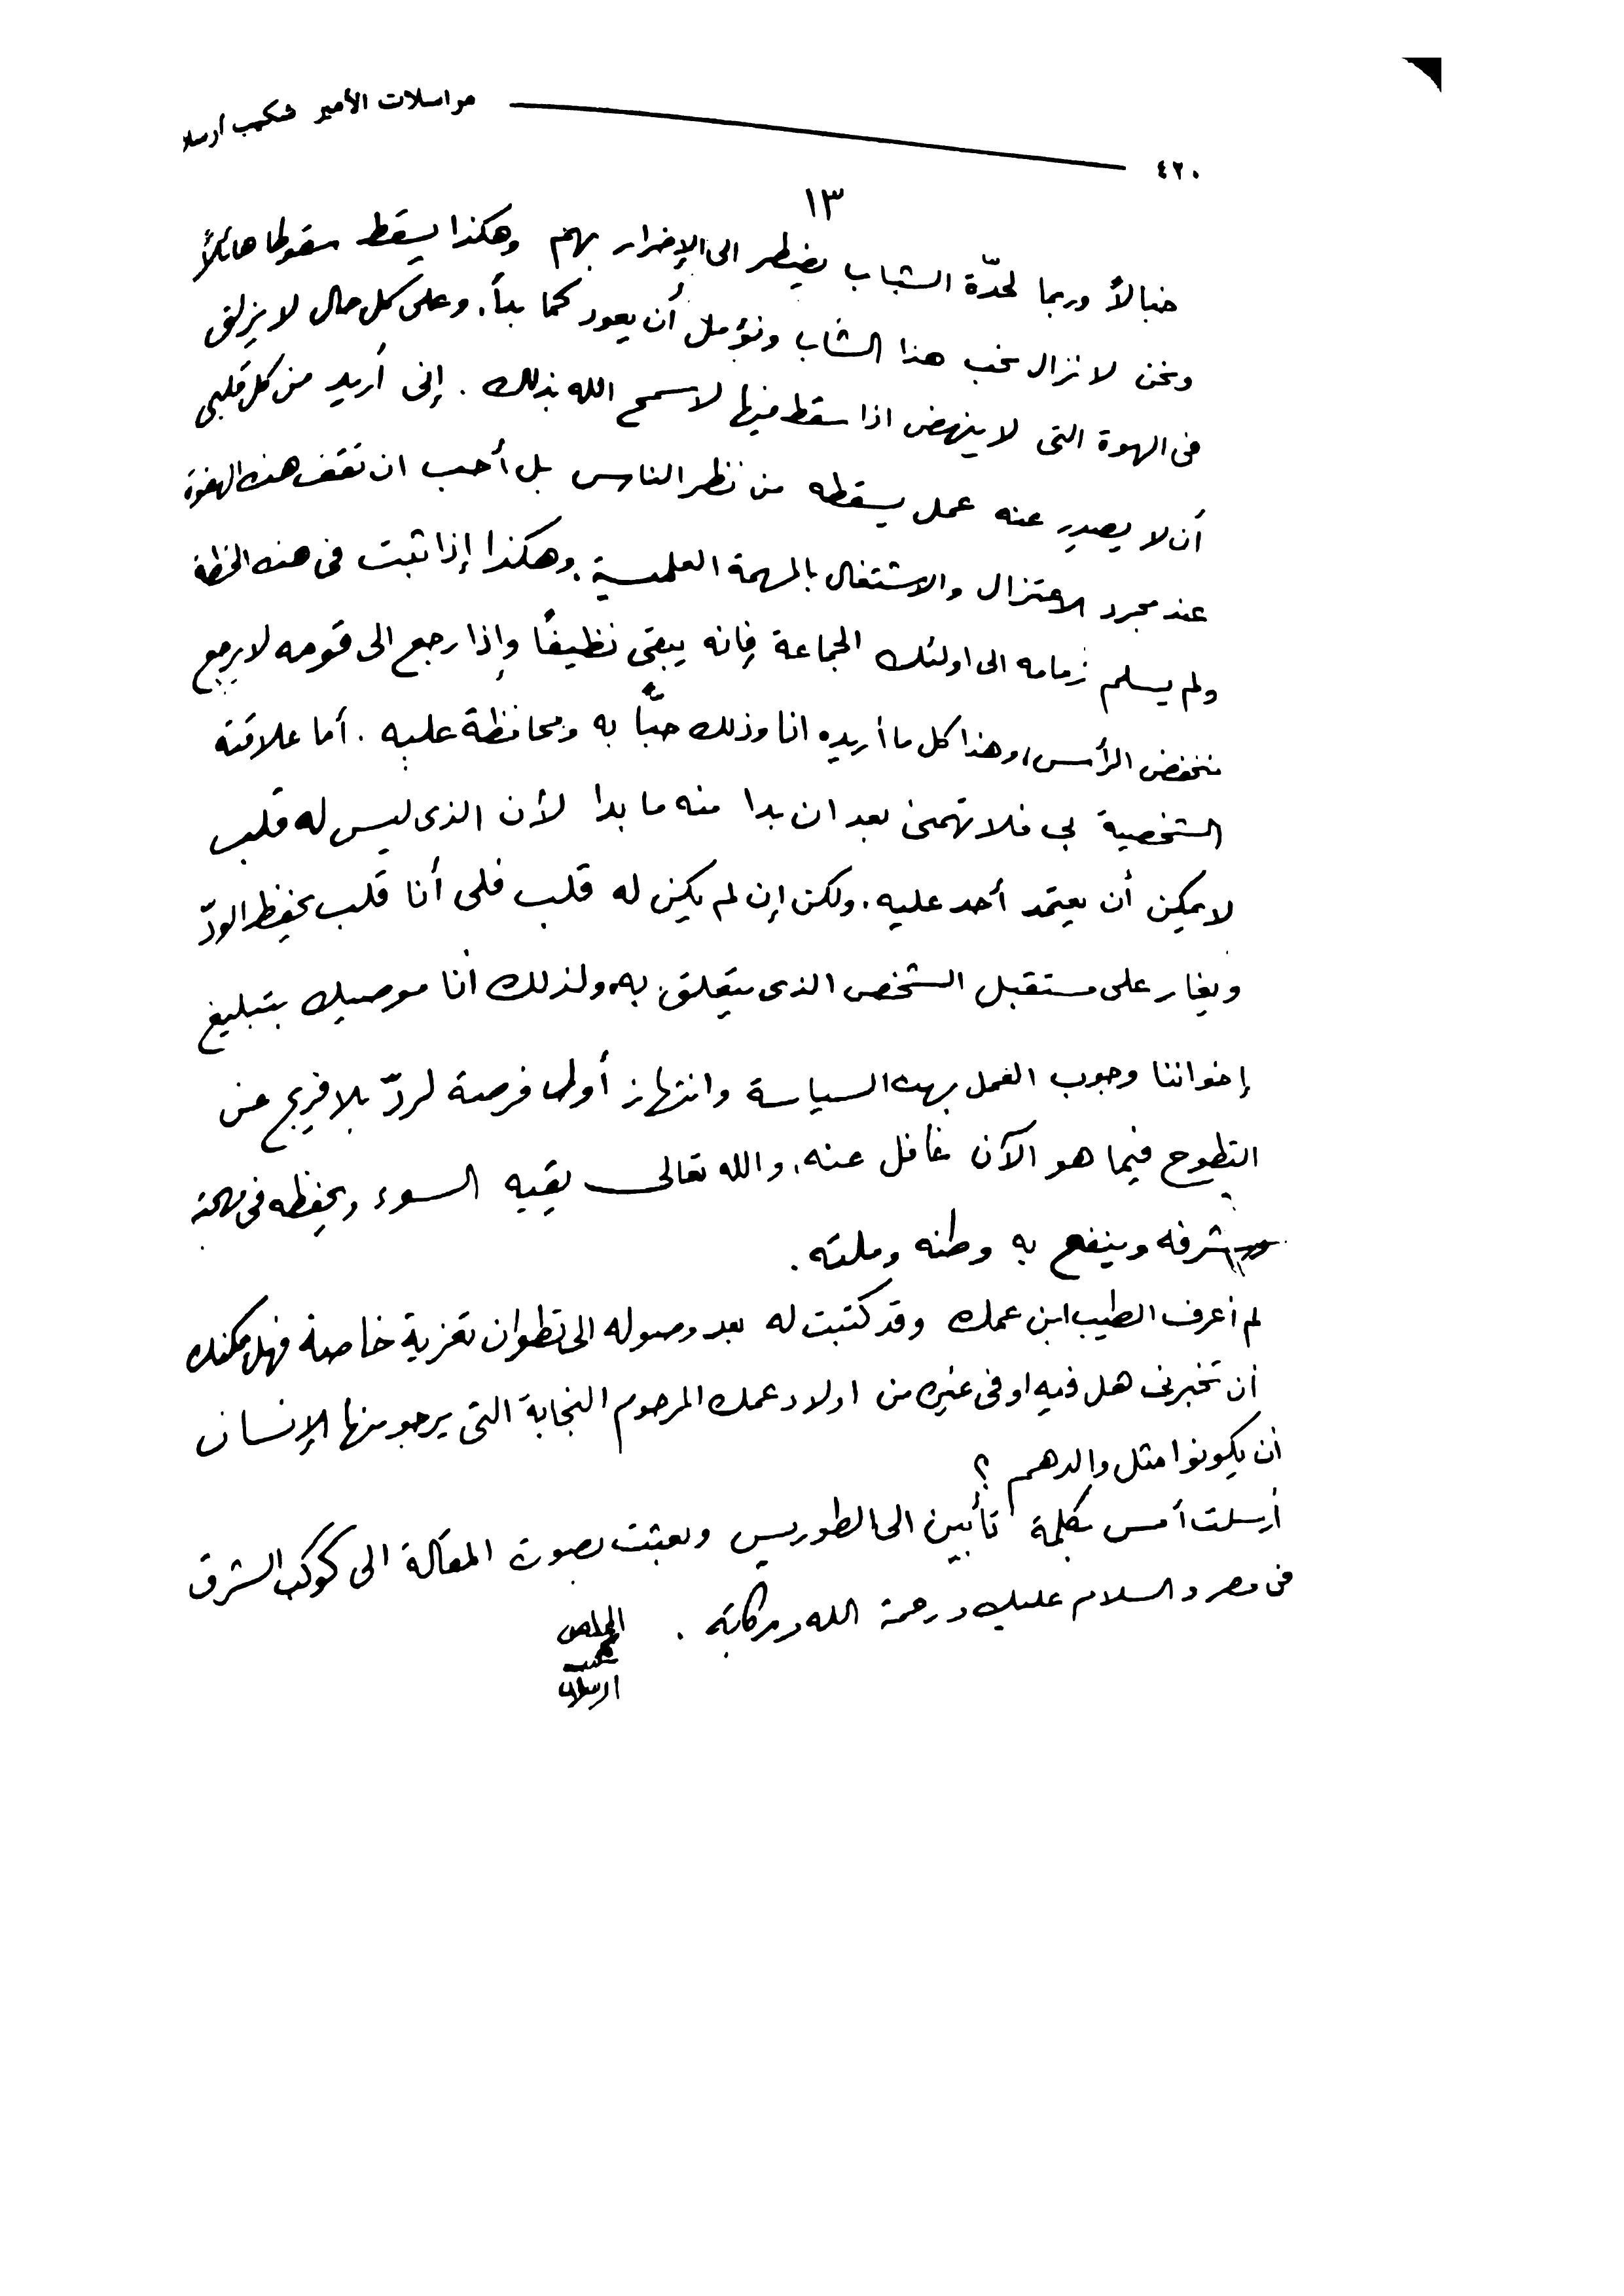 ٤٢٠ مراسلات الأمير شكيب أرسلا
١٣
خبالاً وربما لحدّة الشباب يضطر الى الإضرار بهم وهكذا يسقط سقوطا هائلاً
ونحن لا نزال نحب هذا الشاب ونؤمل أن يعود كما بدأ. وعلى كل حال لا يزلق
فى الهوة التى لا ينهض اذا سقط فيها لا سمح الله بذلك. إنى أريد من كل قلبى
أن لا يصدر عنه عمل يسقطه من نظر الناس بل أحب ان تقف هذه الهفوة
عند مجرد الاعتزال والاشتغال بالمهمة العلمية. وهكذا إذا ثبت فى هذه الخطة
ولم يسلم زمامه الى اولئك الجماعة فإنه يبقى نظيفًا وإذا رجع الى قومه لا يرجع
منخفض الرأس، وهذا كل ما أريده انا وذلك حبًّا به ومحافظة عليه. أما علاقته
الشخصية بى فلا تهمنى بعد ان بدا منه ما بدا لأن الذى ليس له قلب
لا يمكن أن يعتمد أحد عليه. ولكن إن لم يكن له قلب فلى أنا قلب يحفظ الودّ
ويغار على مستقبل الشخص الذى يتعلق به، ولذلك أنا موصيك بتبليغ
إخواننا وجوب العمل بهذه السياسة وانتهاز أول فرصة لردّ بلافريج عن
التطوح فيما هو الآن غافل عنه، والله تعالى يقيه السوء ويحفظه فى
شرفه وينفع به وطنه وملته.
لم أعرف الطيب ابن عمك وقد كتبت له بعد وصوله الى تطوان تعزية خاصة فهل يمكنك
أن تخبرنى هل فيه او فى غيره من اولاد عمك المرحوم النجابة التى يرجو منها الإنسان
أن يكونوا مثل والدهم ؟
أرسلت أمس بكلمة تأبين الى الطوريس وبعثت بصورة المقالة الى كوكب الشرق
فى مصر والسلام عليك ورحمة الله وبركاته.
المخلص
شكيب
ارسلان